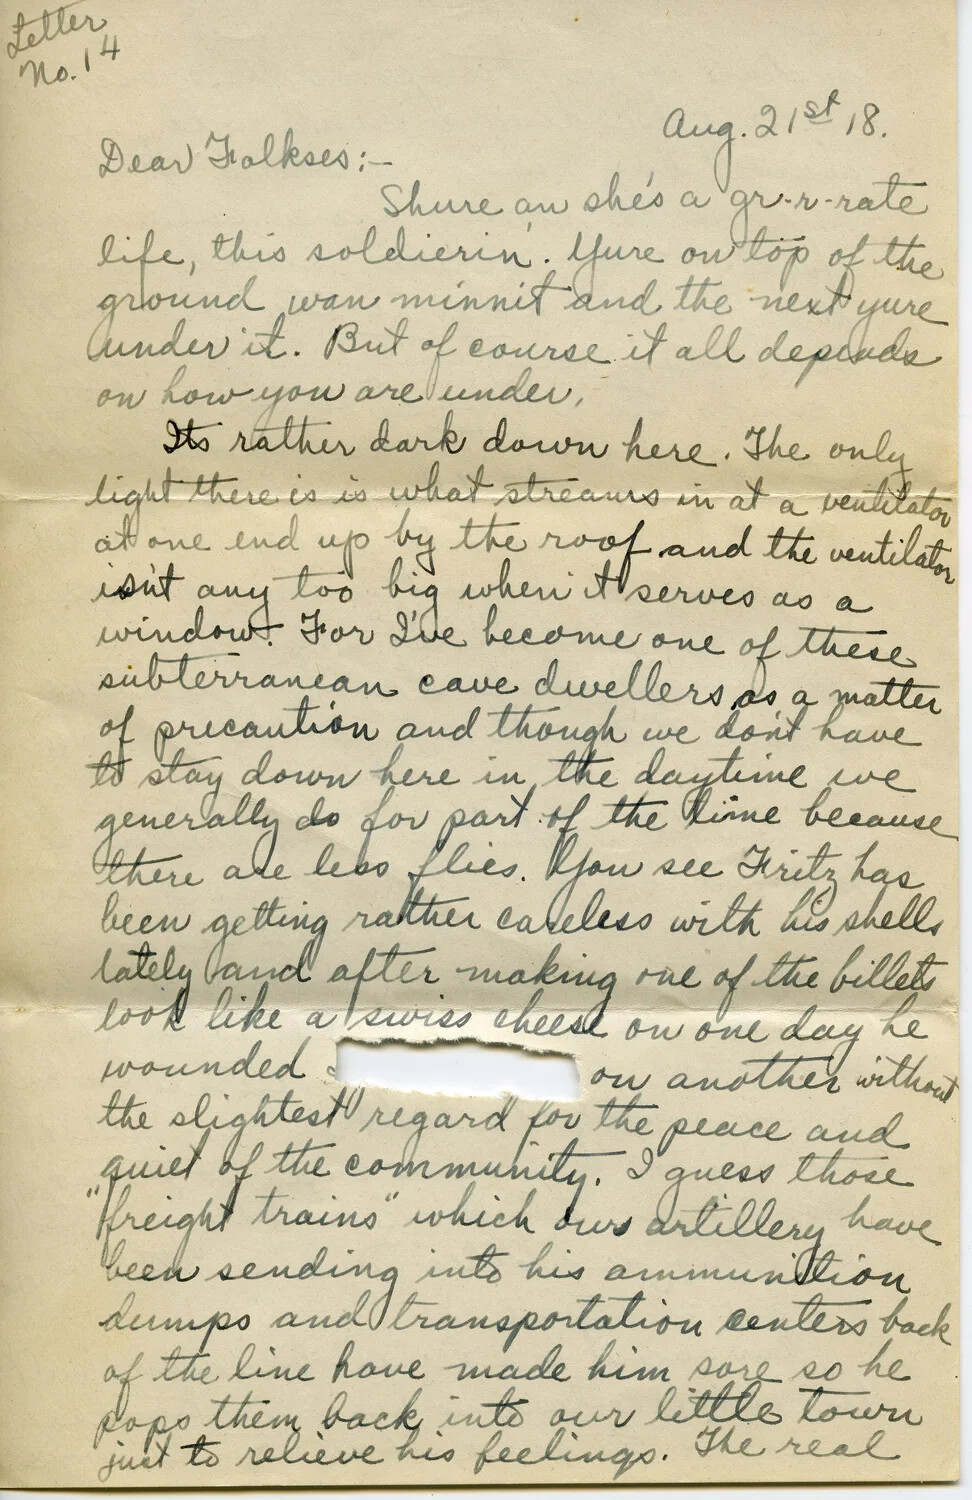 Letter
No. 14
Aug. 21st 18.
Dear Folkses:-
Shure an she's a gr-r-rate
life, this soldierin'. Yure on top of the
ground wan minnit and the next yure
under it. But of course it all depends
on how you are under.
Its rather dark down here. The only
light there is is what streams in at a ventilator
at one end up by the roof and the ventilator
isn't any too big when it serves as a
window. For I've become one of these
subterranean cave dwellers as a matter
of precaution and though we don't have
to stay down here in the daytime we
generally do for part of the time because
there are less flies. You see Fritz has
been getting rather careless with his shells
lately and after making one of the billets
look like a swiss cheese on one day he
wounded on another without
the slightest regard for the peace and
quiet of the community. I guess those
"freight trains" which our artillery have
been sending into his ammunition
dumps and transportation centers back
of the line have made him sore so he
pops them back into our little town
just to relieve his feelings. The real